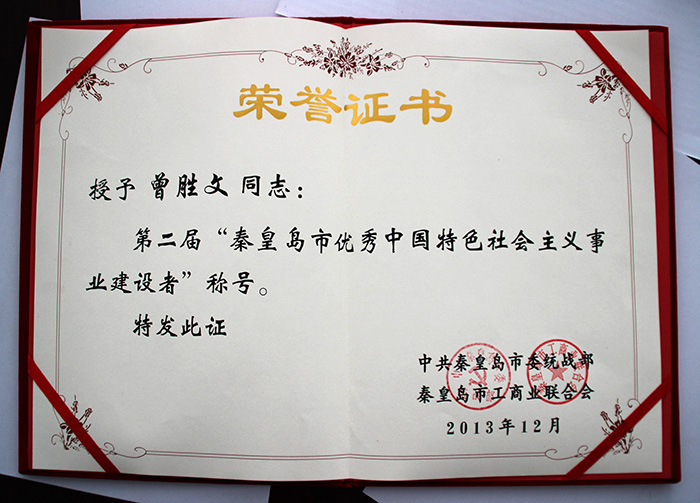 荣誉证书
授予 曾胜文 同志：
第二届“秦皇岛市优秀中国特色社会主义事
业建设者”称号。
特发此证
中共秦皇岛市委统战部
秦皇岛市工商业联合会
2013年12月